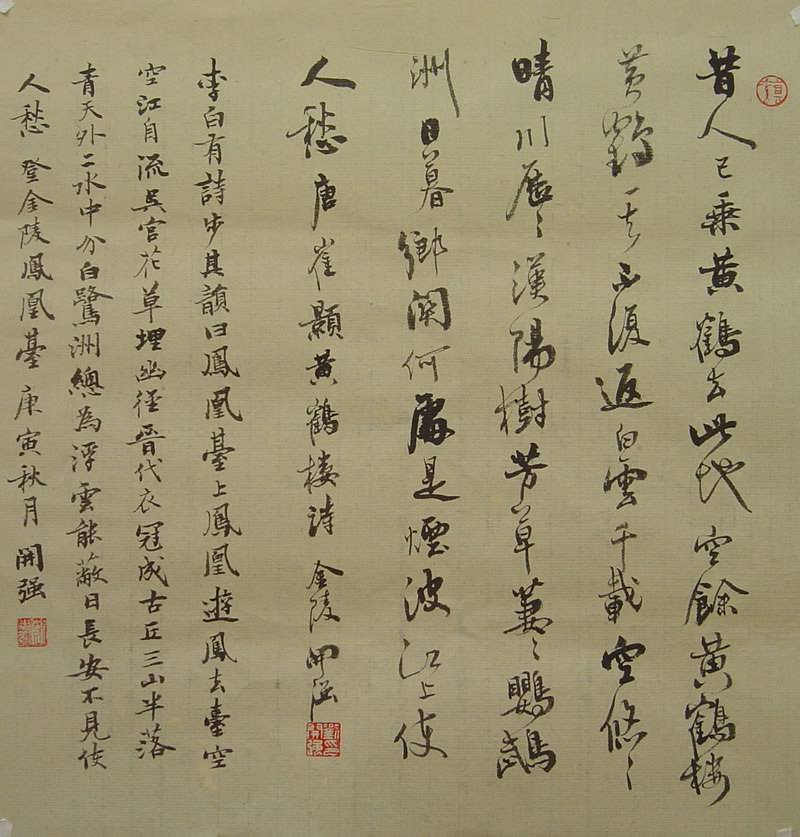 昔人已乗黄鶴去此地空餘黄鶴樓
黄鶴一去不復返白雲千載空悠〻
晴川歷〻漢陽樹芳草萋〻鸚鵡
洲日暮鄉関何處是煙波江上使
人愁唐崔顥黄鶴樓詩金陵開強
劉印開強
李白有詩步其韻曰鳳凰臺上鳳凰遊鳳去臺空
空江自流吳官花草埋幽徑晉代衣冠成古丘三山半落
青天外二水中分白鷺洲總為浮雲能蔽日長安不見使
人愁登金陵鳳凰臺庚寅秋月開強